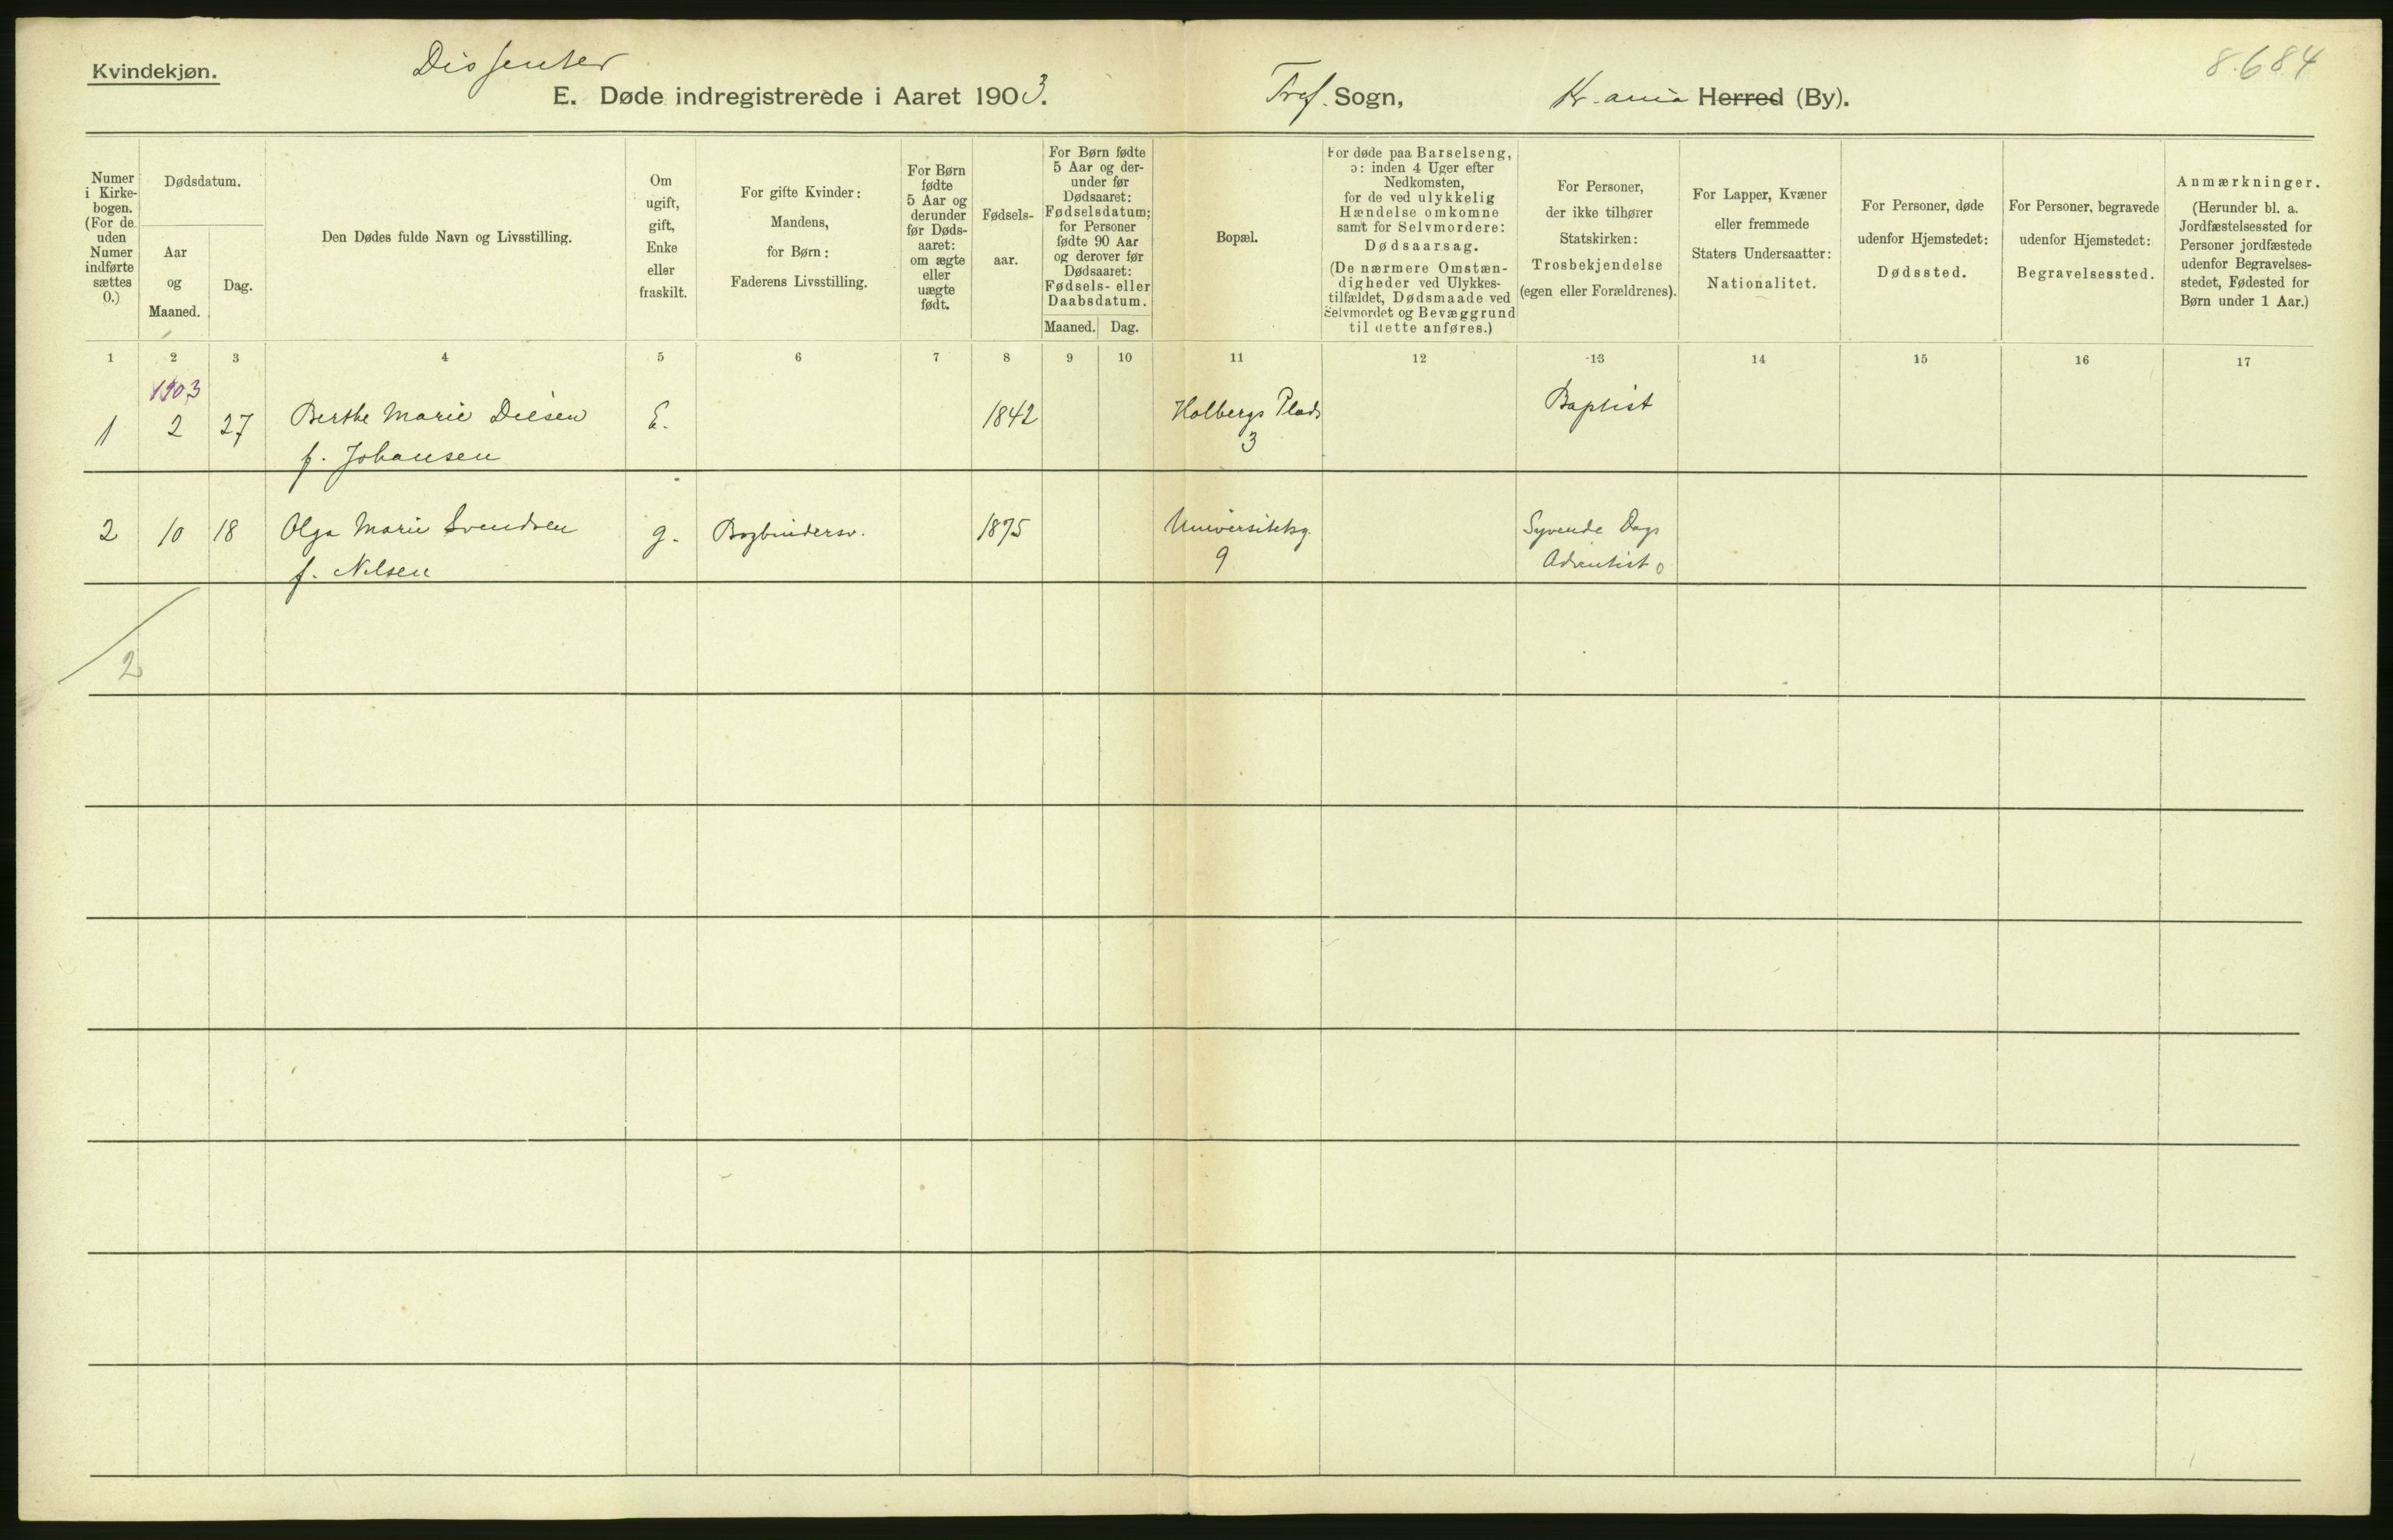 Kvindekjøn.
Dissenter
8.684
E. Døde indregistrerede i Aaret 1903.
Tref. Sogn,
Kr.ania Herred (By).
Numer i Kirke-bogen. (For de uden Numer indførte sættes 0.)
Dødsdatum.
Aar og Maaned.
Dag.
Den Dødes fulde Navn og Livsstilling.
Om ugift, gift, Enke eller fraskilt.
For gifte Kvinder: Mandens, for Børn: Faderens Livsstilling.
For Børn fødte 5 Aar og derunder før Døds-aaret: om ægte eller uægte født.
Fødsels-aar.
For Børn fødte 5 Aar og der-under før Dødsaaret: Fødselsdatum; for Personer fødte 90 Aar og derover før Dødsaaret: Fødsels- eller Daabsdatum.
Maaned.
Dag.
Bopæl.
For døde paa Barselseng, ɔ: inden 4 Uger efter Nedkomsten, for de ved ulykkelig Hændelse omkomne samt for Selvmordere: Dødsaarsag. (De nærmere Omstæn-digheder ved Ulykkes-tilfældet, Dødsmaade ved Selvmordet og Bevæggrund til dette anføres.)
For Personer, der ikke tilhører Statskirken: Trosbekjendelse (egen eller Forældrenes).
For Lapper, Kvæner eller fremmede Staters Undersaatter: Nationalitet.
For Personer, døde udenfor Hjemstedet: Dødssted.
For Personer, begravede udenfor Hjemstedet: Begravelsessted.
Anmærkninger. (Herunder bl. a. Jordfæstelsessted for Personer jordfæstede udenfor Begravelses-stedet, Fødested for Børn under 1 Aar.)
1 2 3 4 5 6 7 8 9 10 11 12 13 14 15 16 17
1903
1 2 27 Berthe Marie Diesen E. 1842 Holbergs Plads Baptist
f. Johansen 3
2 10 18 Olga Marie Svendsen g. Bogbindersv. 1875 Universitetsg. Syvende Dags
f. Nilsen 9 Adventist
2